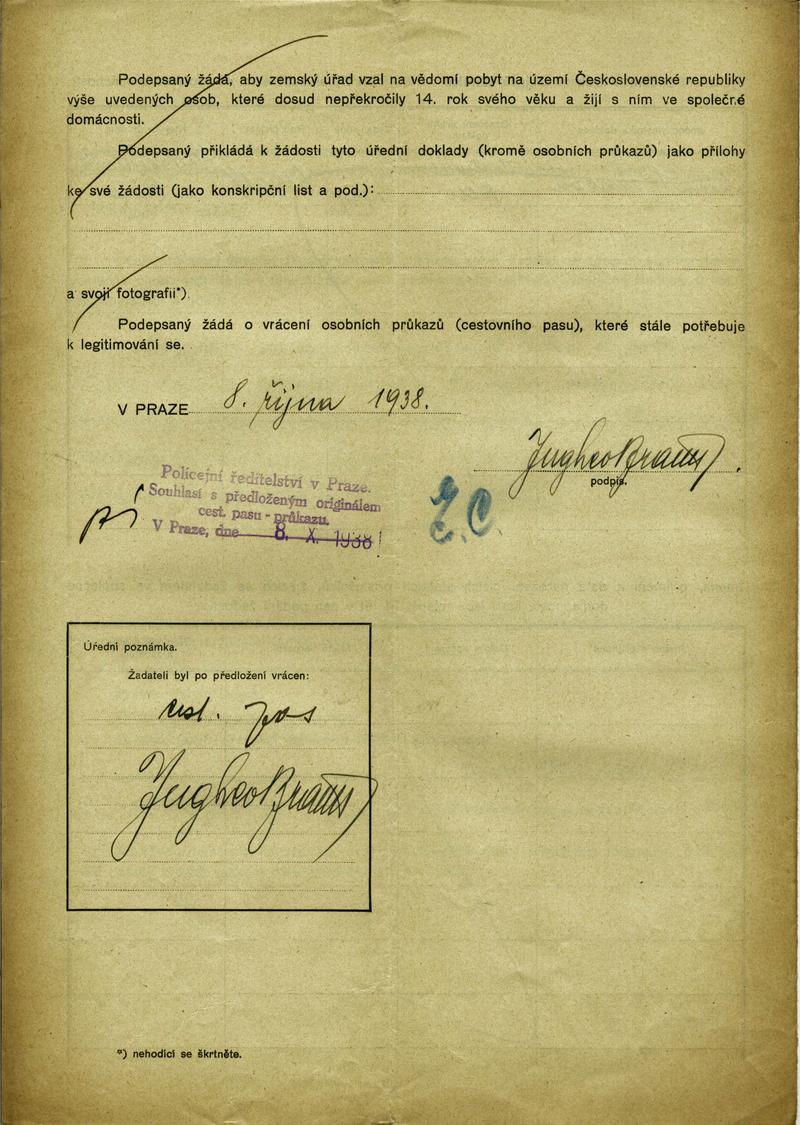 Podepsaný žádá, aby zemský úřad vzal na vědomí pobyt na území Československé republiky
výše uvedených osob, které dosud nepřekročily 14. rok svého věku a žijí s ním ve společné
domácnosti.
Podepsaný přikládá k žádosti tyto úřední doklady (kromě osobních průkazů) jako přílohy
ke své žádosti (jako konskripční list a pod.):
a svoji fotografii*).
Podepsaný žádá o vrácení osobních průkazů (cestovního pasu), které stále potřebuje
k legitimování se.
V PRAZE 8. října 1938.
podpis.
Policejní ředitelství v Praze.
Souhlasí s předloženým originálem
cest. pasu - průkazu.
V Praze, dne 8. X. 1938
Úřední poznámka.
Žadateli byl po předložení vrácen:
cest. pas
*) nehodící se škrtněte.